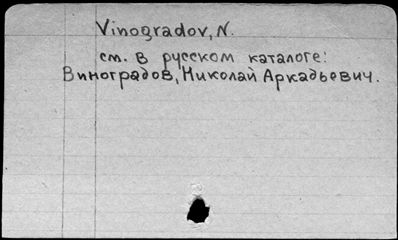 Vinogradov, N.
см. в русском каталоге:
Виноградов, Николай Аркадьевич.